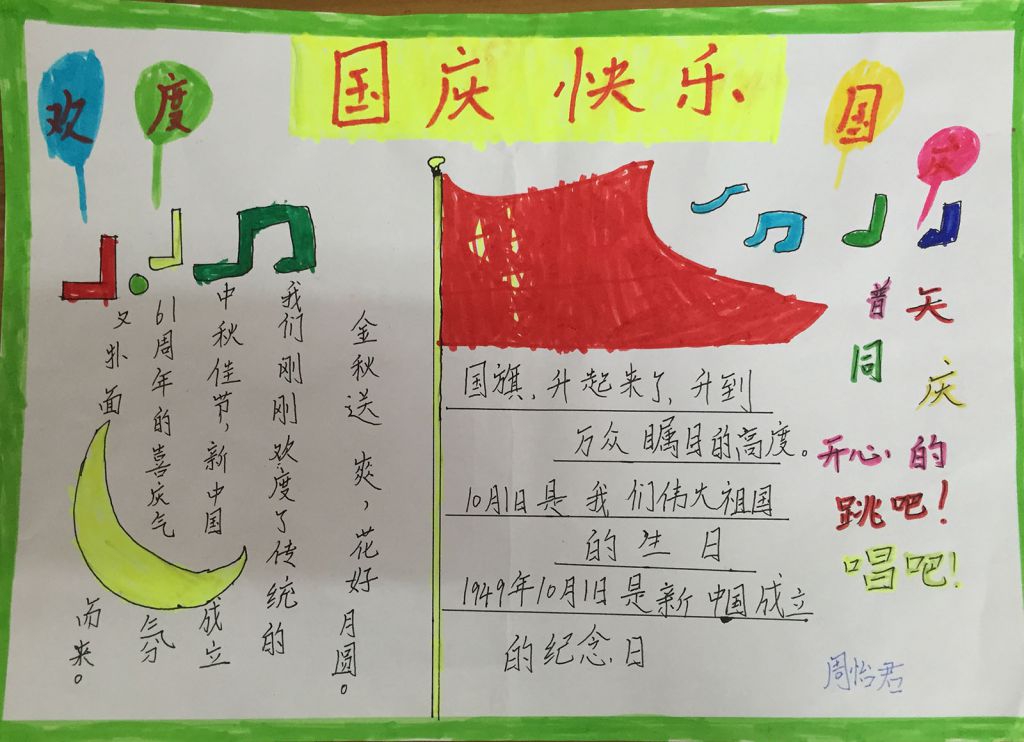 国庆快乐
欢度
国庆
金秋送爽，花好月圆。
我们刚刚欢度了传统的
中秋佳节，新中国成立
61周年的喜庆气氛
又扑面而来。
国旗，升起来了，升到
万众瞩目的高度。
10月1日是我们伟大祖国
的生日
1949年10月1日是新中国成立
的纪念日
普天
同庆
开心的
跳吧！
唱吧！
周怡君